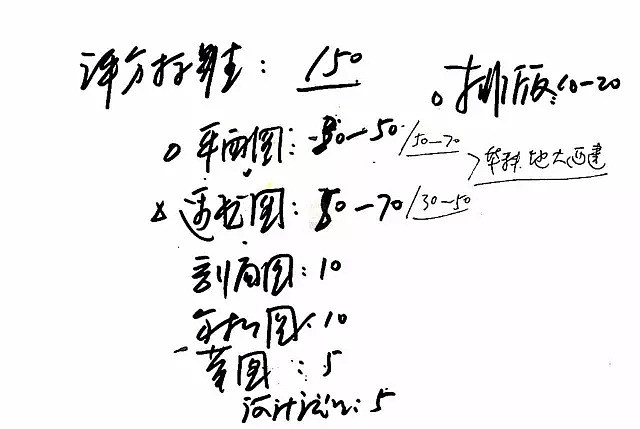 评分标准：150
。排版：10—20
○平面图：30—50/50—70
>华科.地大西建
△透视图：50—70/30—50
剖面图：10
分析图：10
草图：5
设计说明：5